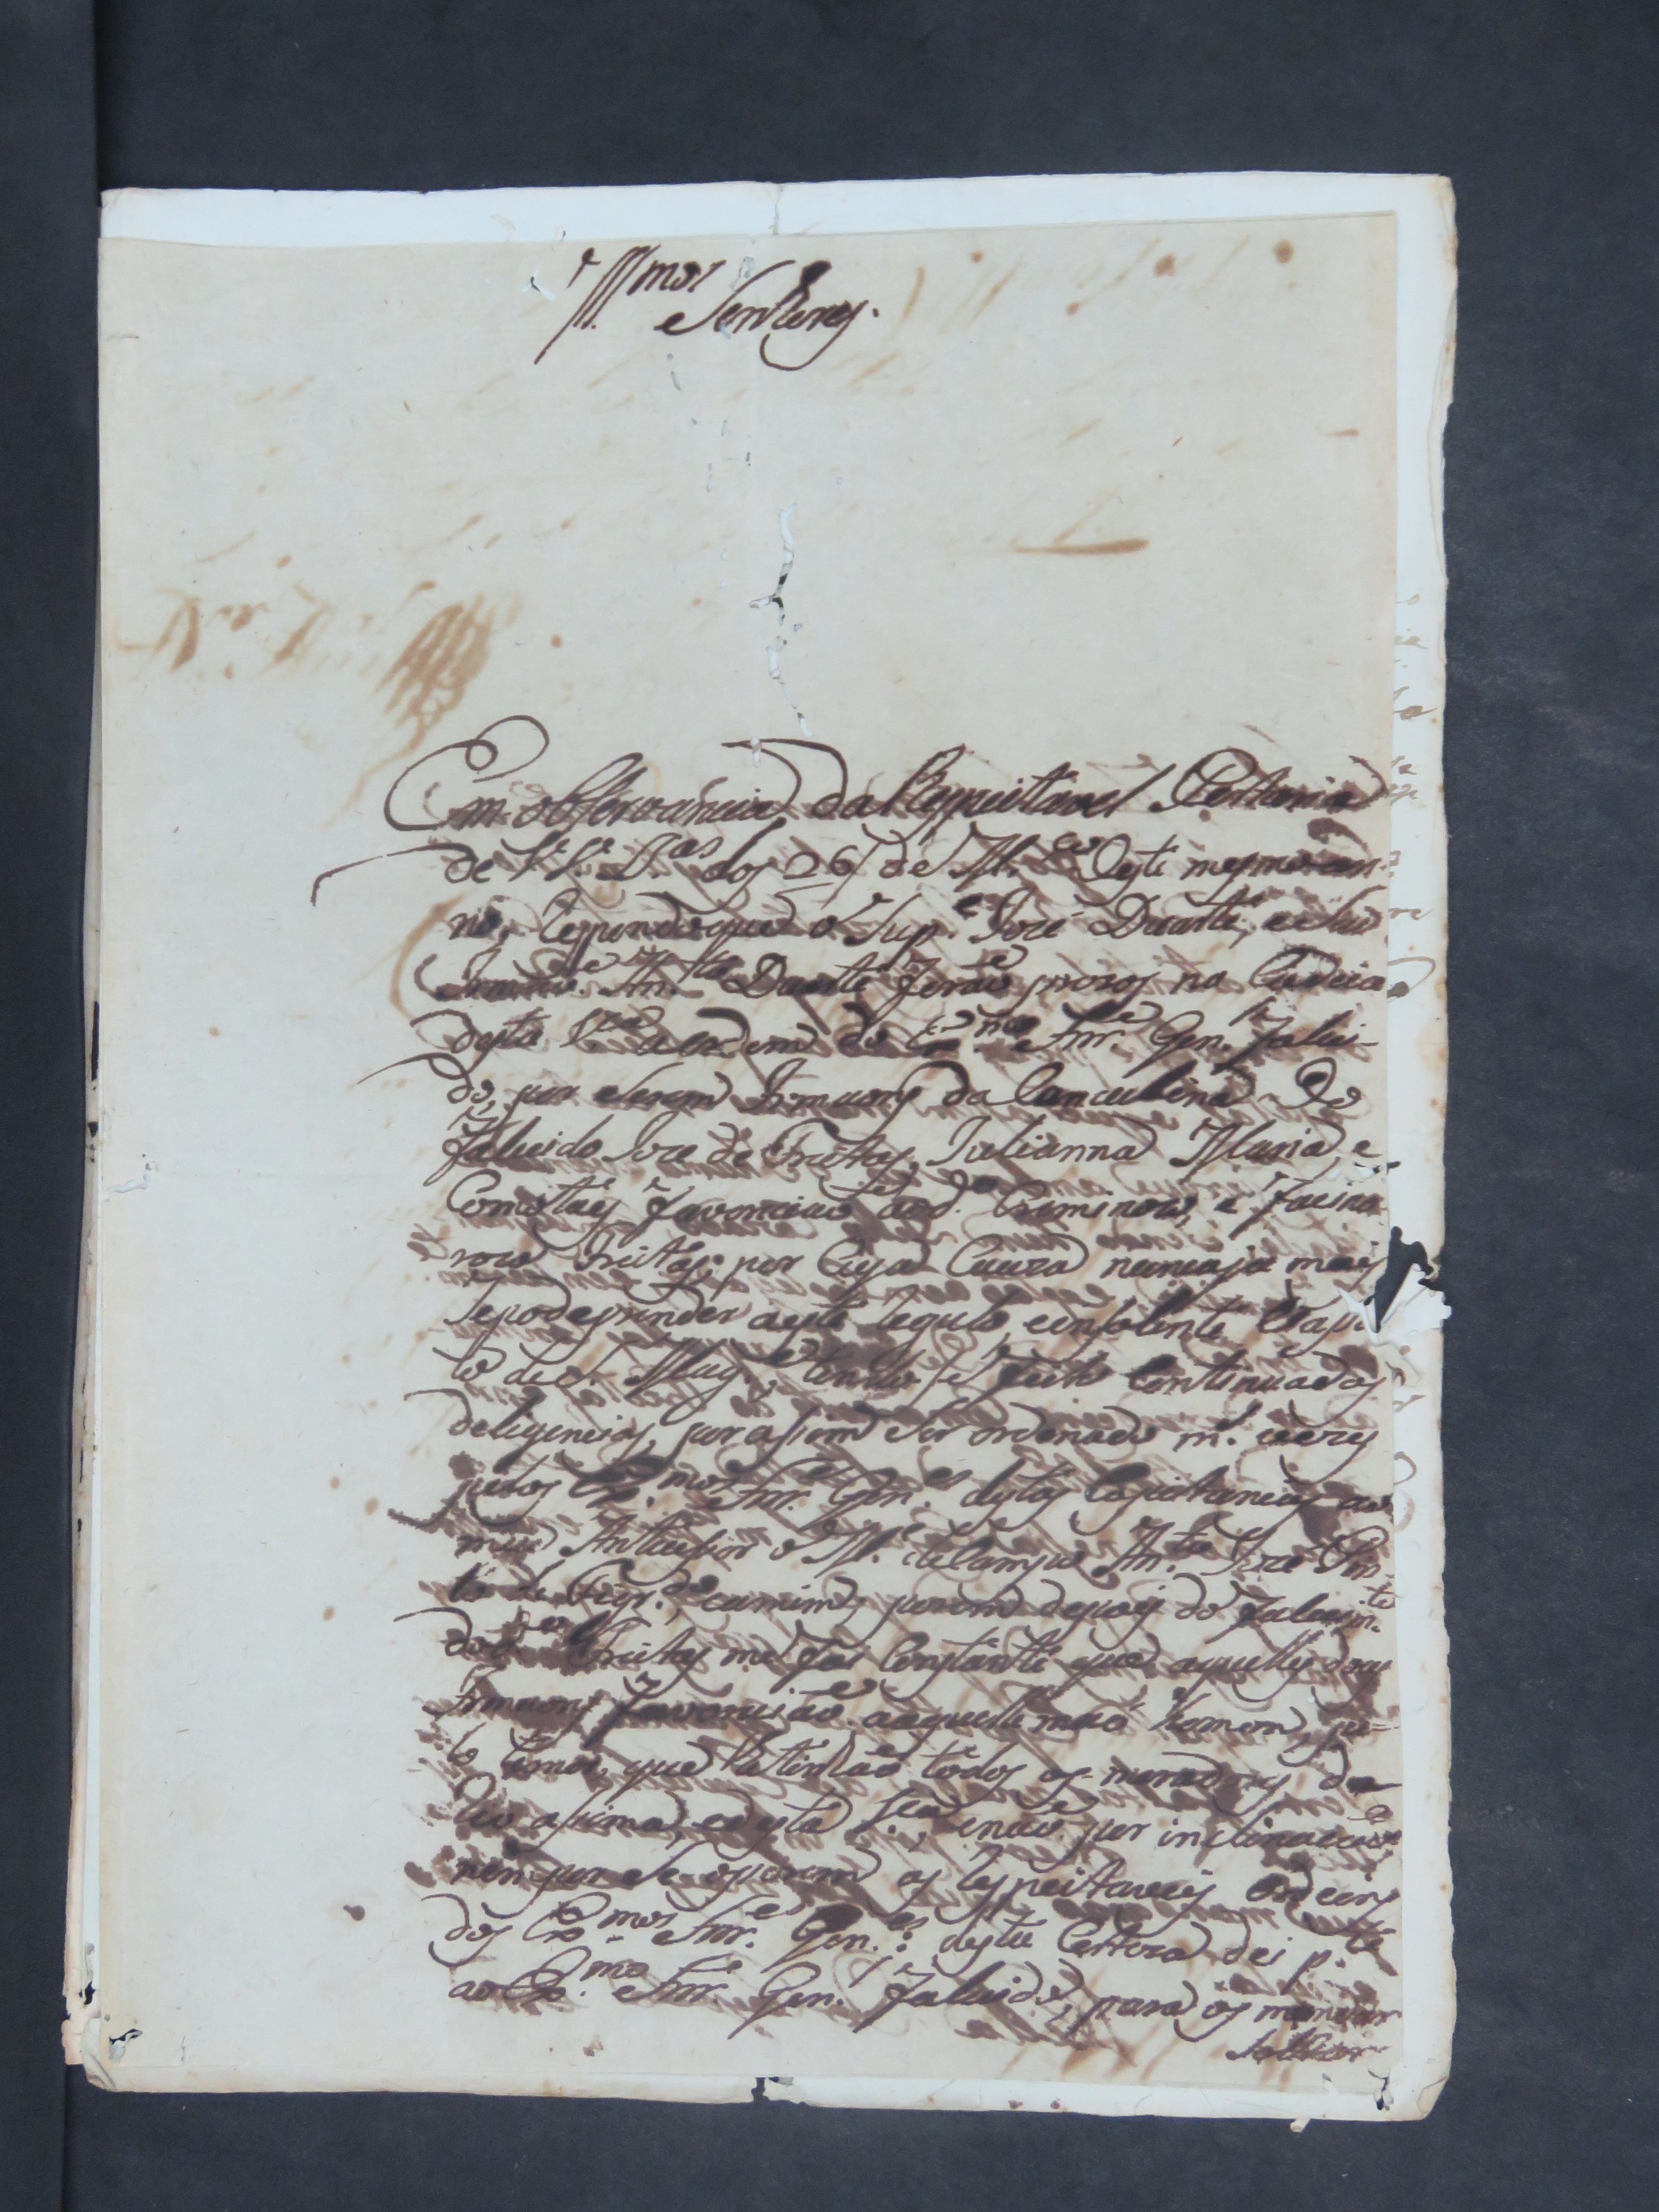 Ill.mos Senhores.
Em observancia da Respeitavel Portaria
de V.V. S.as dos 26 de M.ço deste mesmo an-
no, Respondo que o Sup.e Joze Duarte, e seu
Irmaõ An.to Duarte foraõ prezos na Cadeia
desta V.a a ordem do Ex.mo Snr. Gen.l faleci-
do, por serem Irmaons da Concubina do
falecido Joze de Freitas, Julianna Maria, e
Como taes favoreciaõ ao d.o Criminozo, e facino-
rozo Freitas, por Cuja Cauza nunca já mais
se pode prender a este Regulo, e insolente
de S. Mag.e, tendo-se feito Continuadas
deligencias, por assim ser ordenado m.tas vezes
pelos Ex.mos Snr.es Gen.es destas Capitanias ao
meu Antecessor o M.e de Campo An.to Joze Pin-
to de Figr.do, e a mim, porem depois do falecim.to
do d.o Freitas me foi Constante que aquelles dous
Irmaons favoreciaõ aaquelle mao homem, pe-
lo temor, que lhe tinhaõ todos os moradores do
Rio assima, e desta V.a, e naõ por inclinaçaõ
nem por se oporem as respeitaveis ordens
dos Ex.mos Snr.es Gen.es: desta Certeza dei p.te
ao Ex.mo Snr. Gen.l falecido, para os mandar
soltar